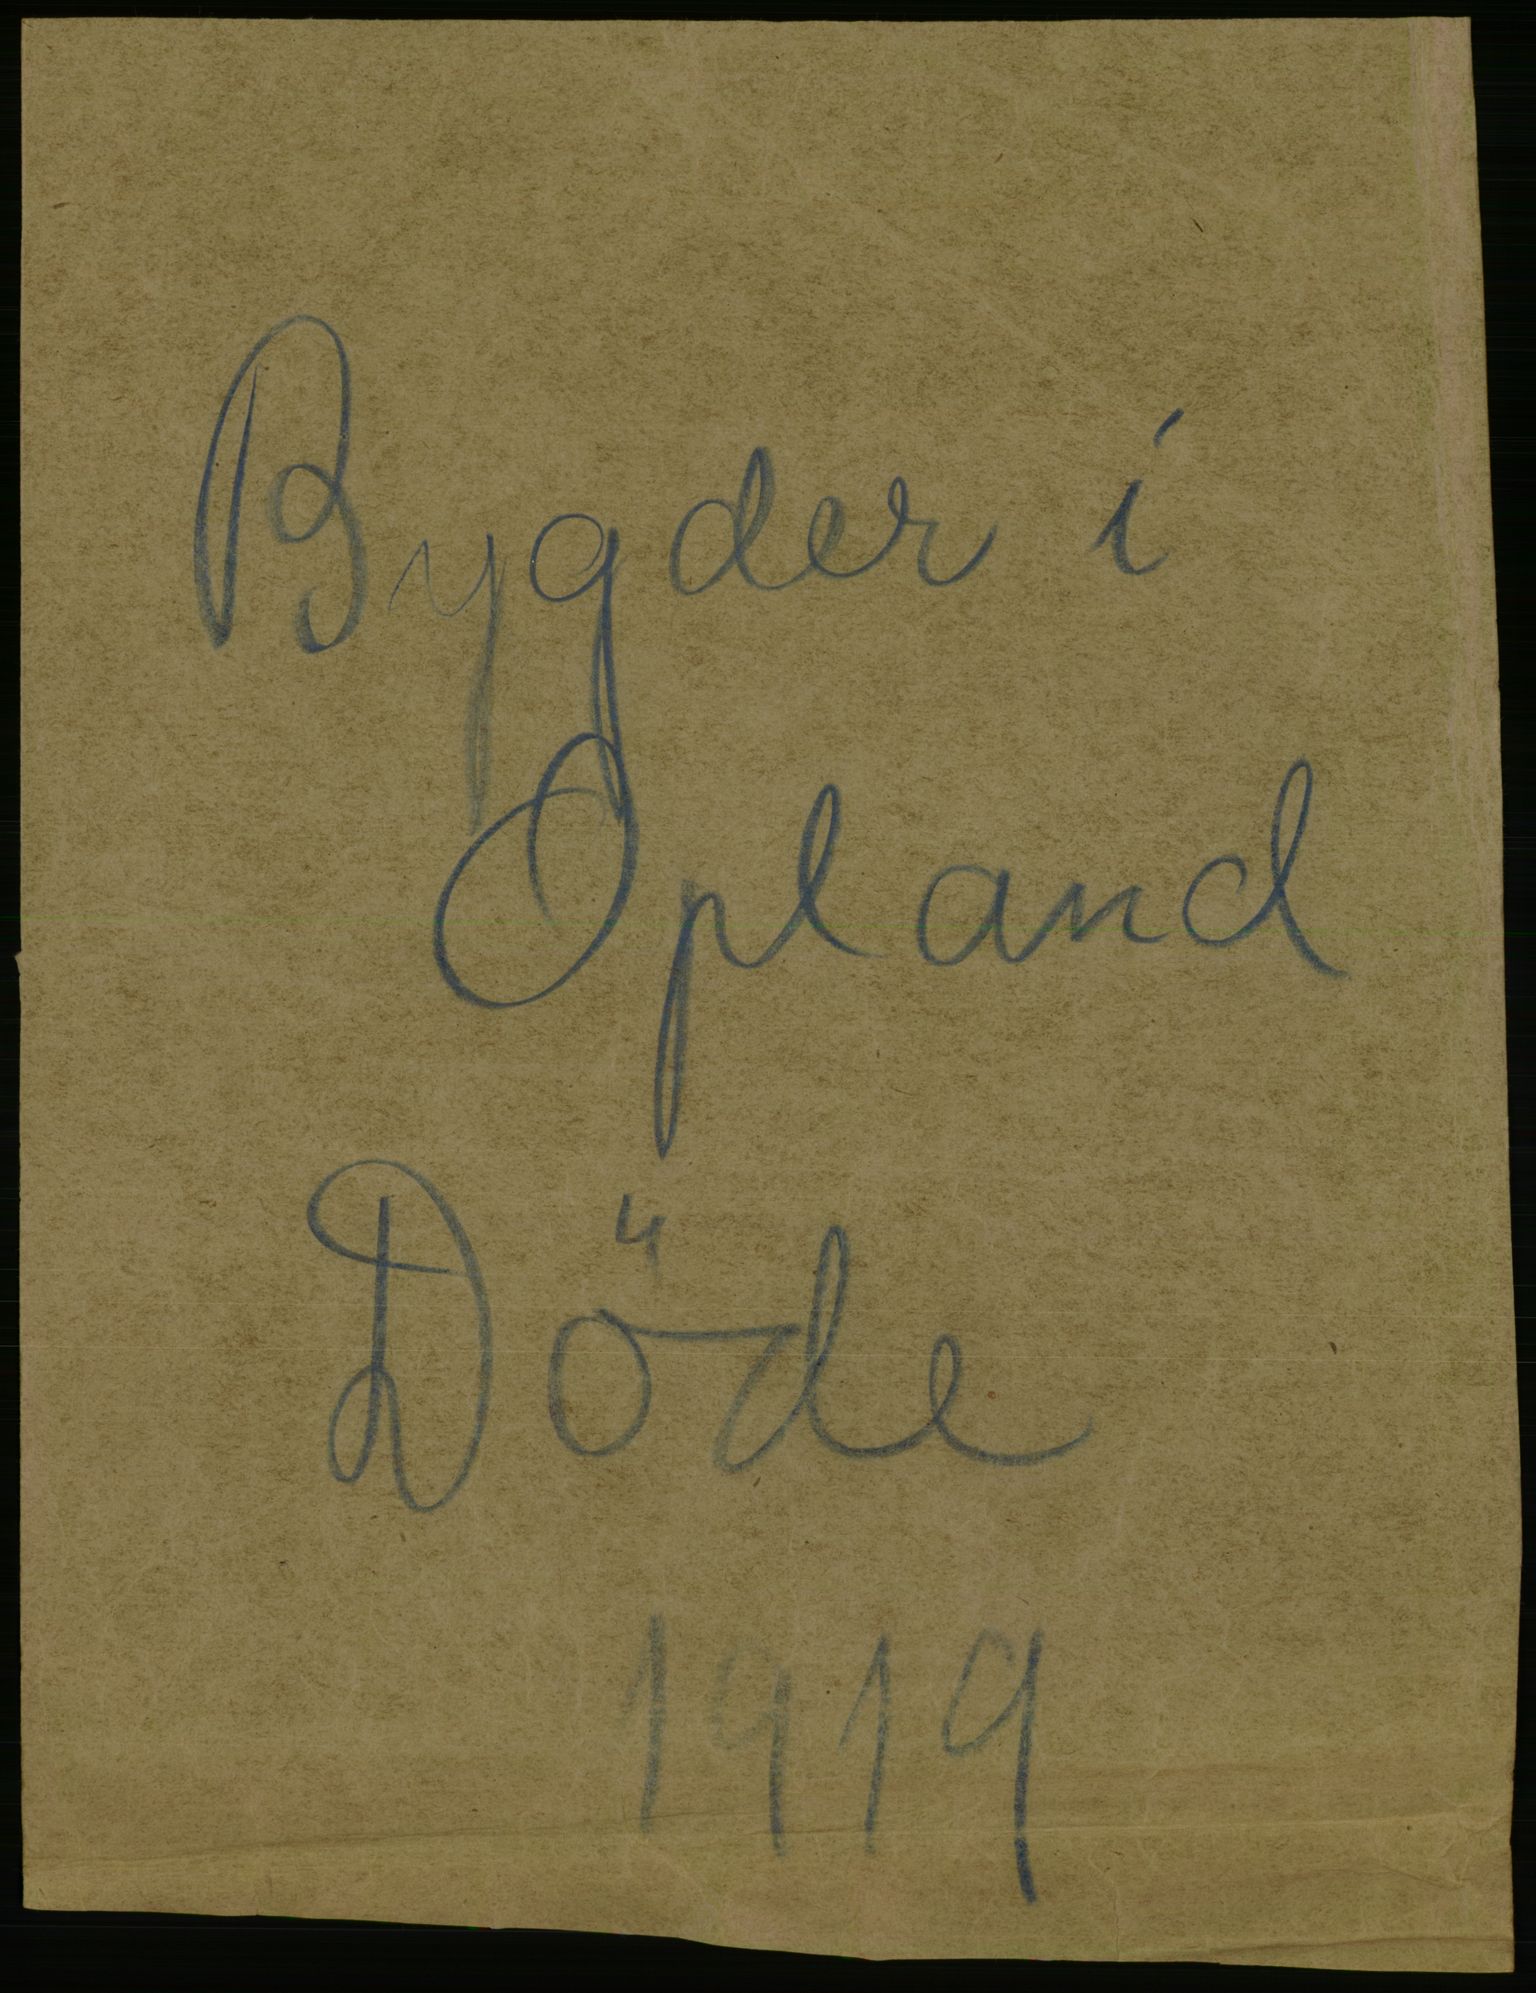 Bygder i
Opland
Döde
1919